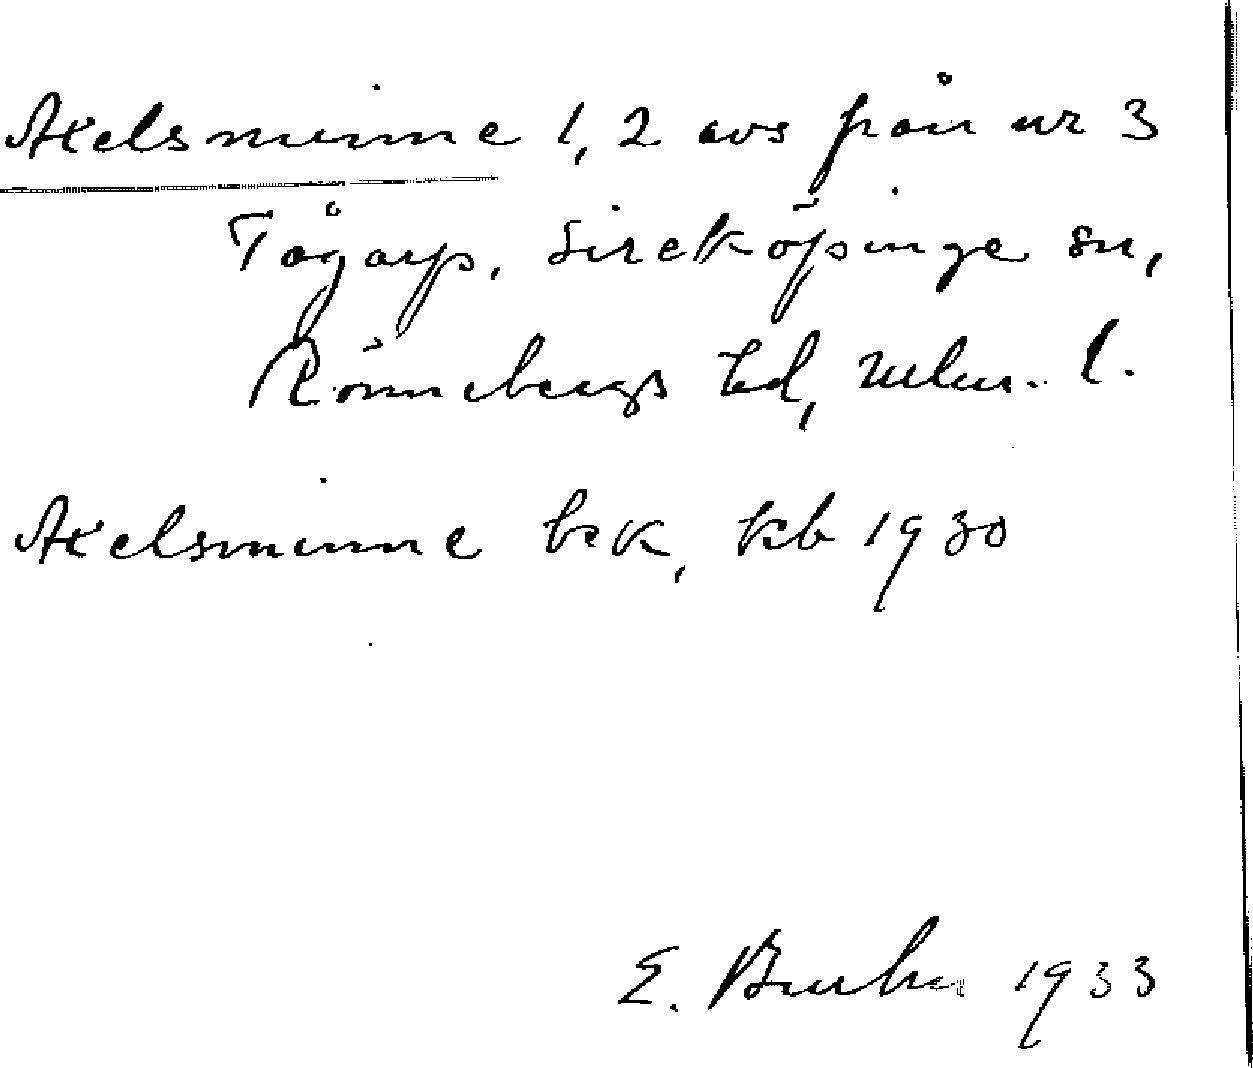 Axelsminne 1,2 avs från nr 3
Tågarp, Sireköpinge sn,
Rönnebergs hd, Mlm. l.
Axelsminne bek, kb 1930
E. 1933